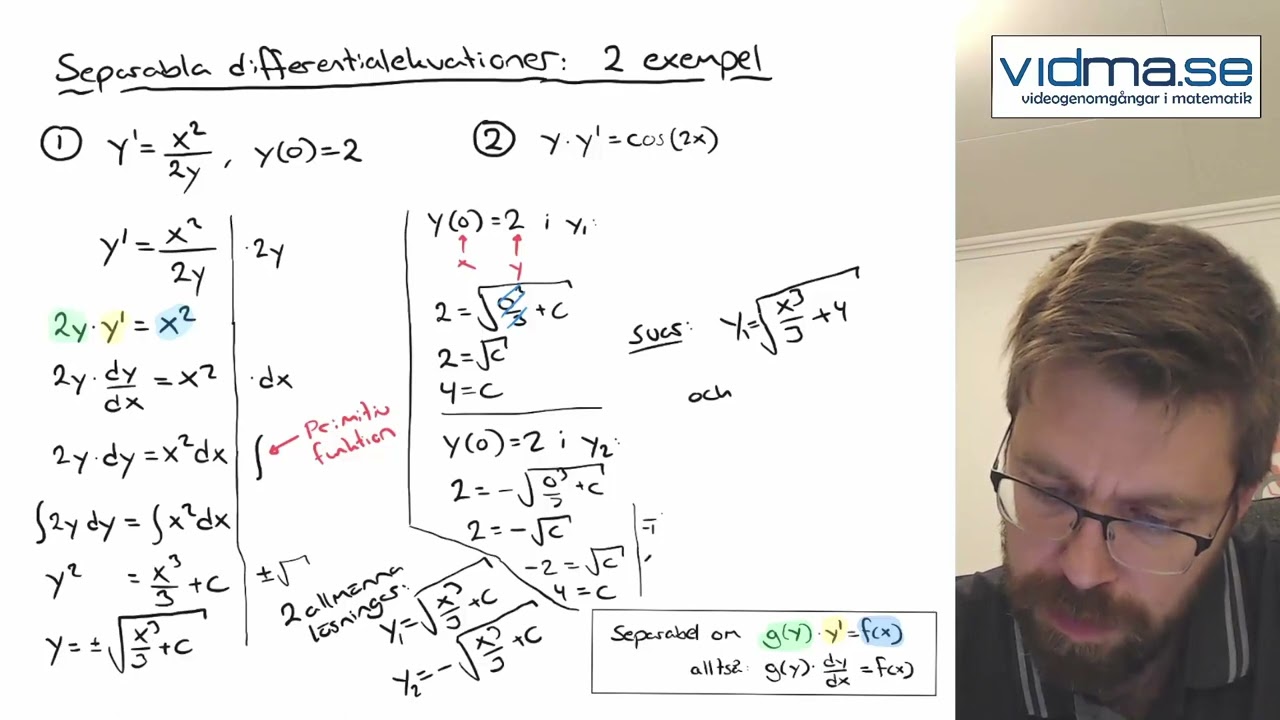 Separabla differentialekvationer: 2 exempel
vidma.se
videogenomgångar i matematik
① y' = x²/2y , y(0)=2
② y·y' = cos(2x)
y' = x²/2y | ·2y
2y·y' = x²
2y·dy/dx = x² | ·dx
2y·dy = x²dx | ∫ ← Primitiv funktion
∫2y dy = ∫x²dx
y² = x³/3 + C | ±√
y = ±√(x³/3 + C)
2 allmänna lösningar:
y₁ = √(x³/3 + C)
y₂ = -√(x³/3 + C)
y(0)=2 i y₁:
x y
2 = √(0³/3 + C)
2 = √C
4 = C
y(0)=2 i y₂:
2 = -√(0³/3 + C)
2 = -√C
-2 = √C
4 = C
svar: y₁ = √(x³/3 + 4)
och
Separabel om g(y)·y' = f(x)
alltså: g(y)·dy/dx = f(x)